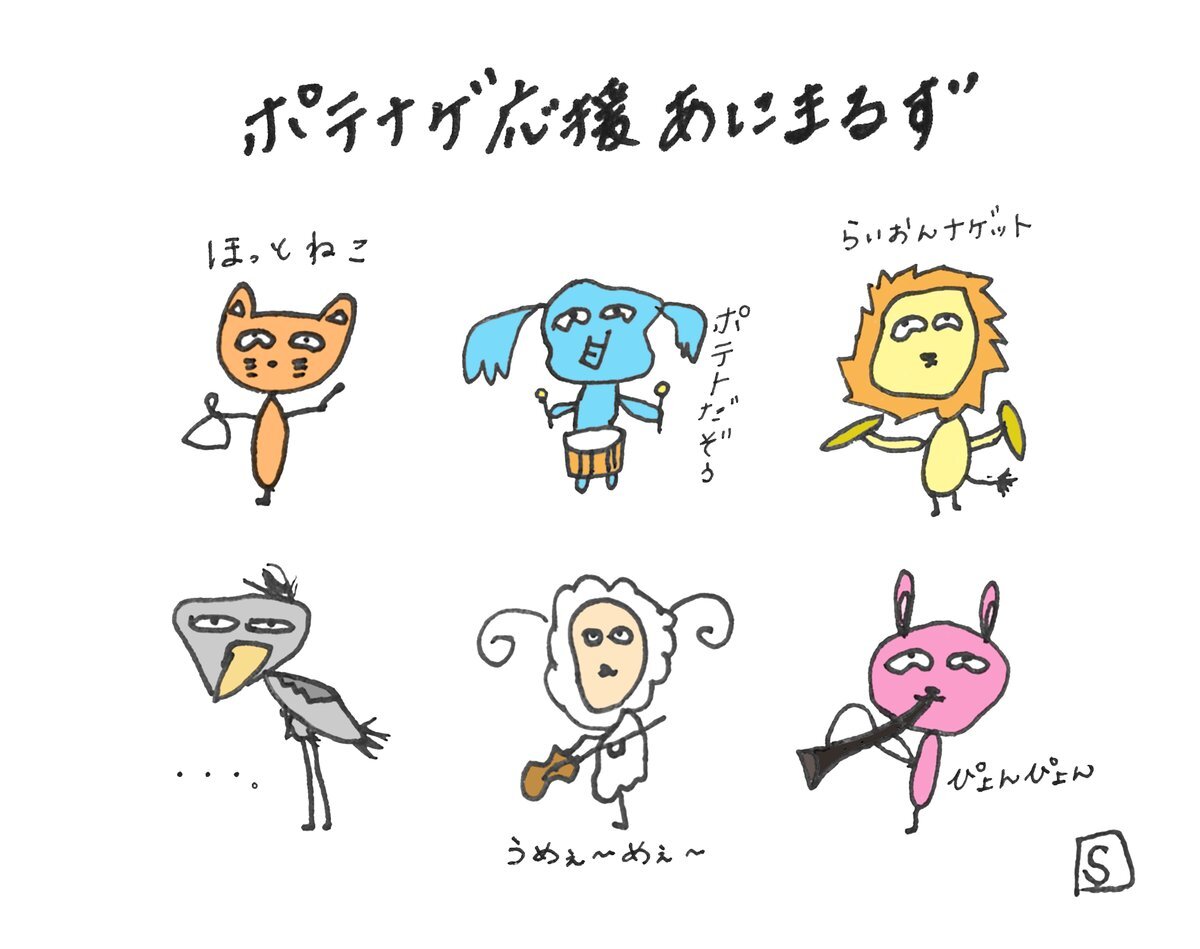 ポテナゲ応援あにまるず
ほっとねこ
ポテトだぞう
らいおんナゲット
・・・。
うめぇ〜めぇ〜
ぴょんぴょん
S